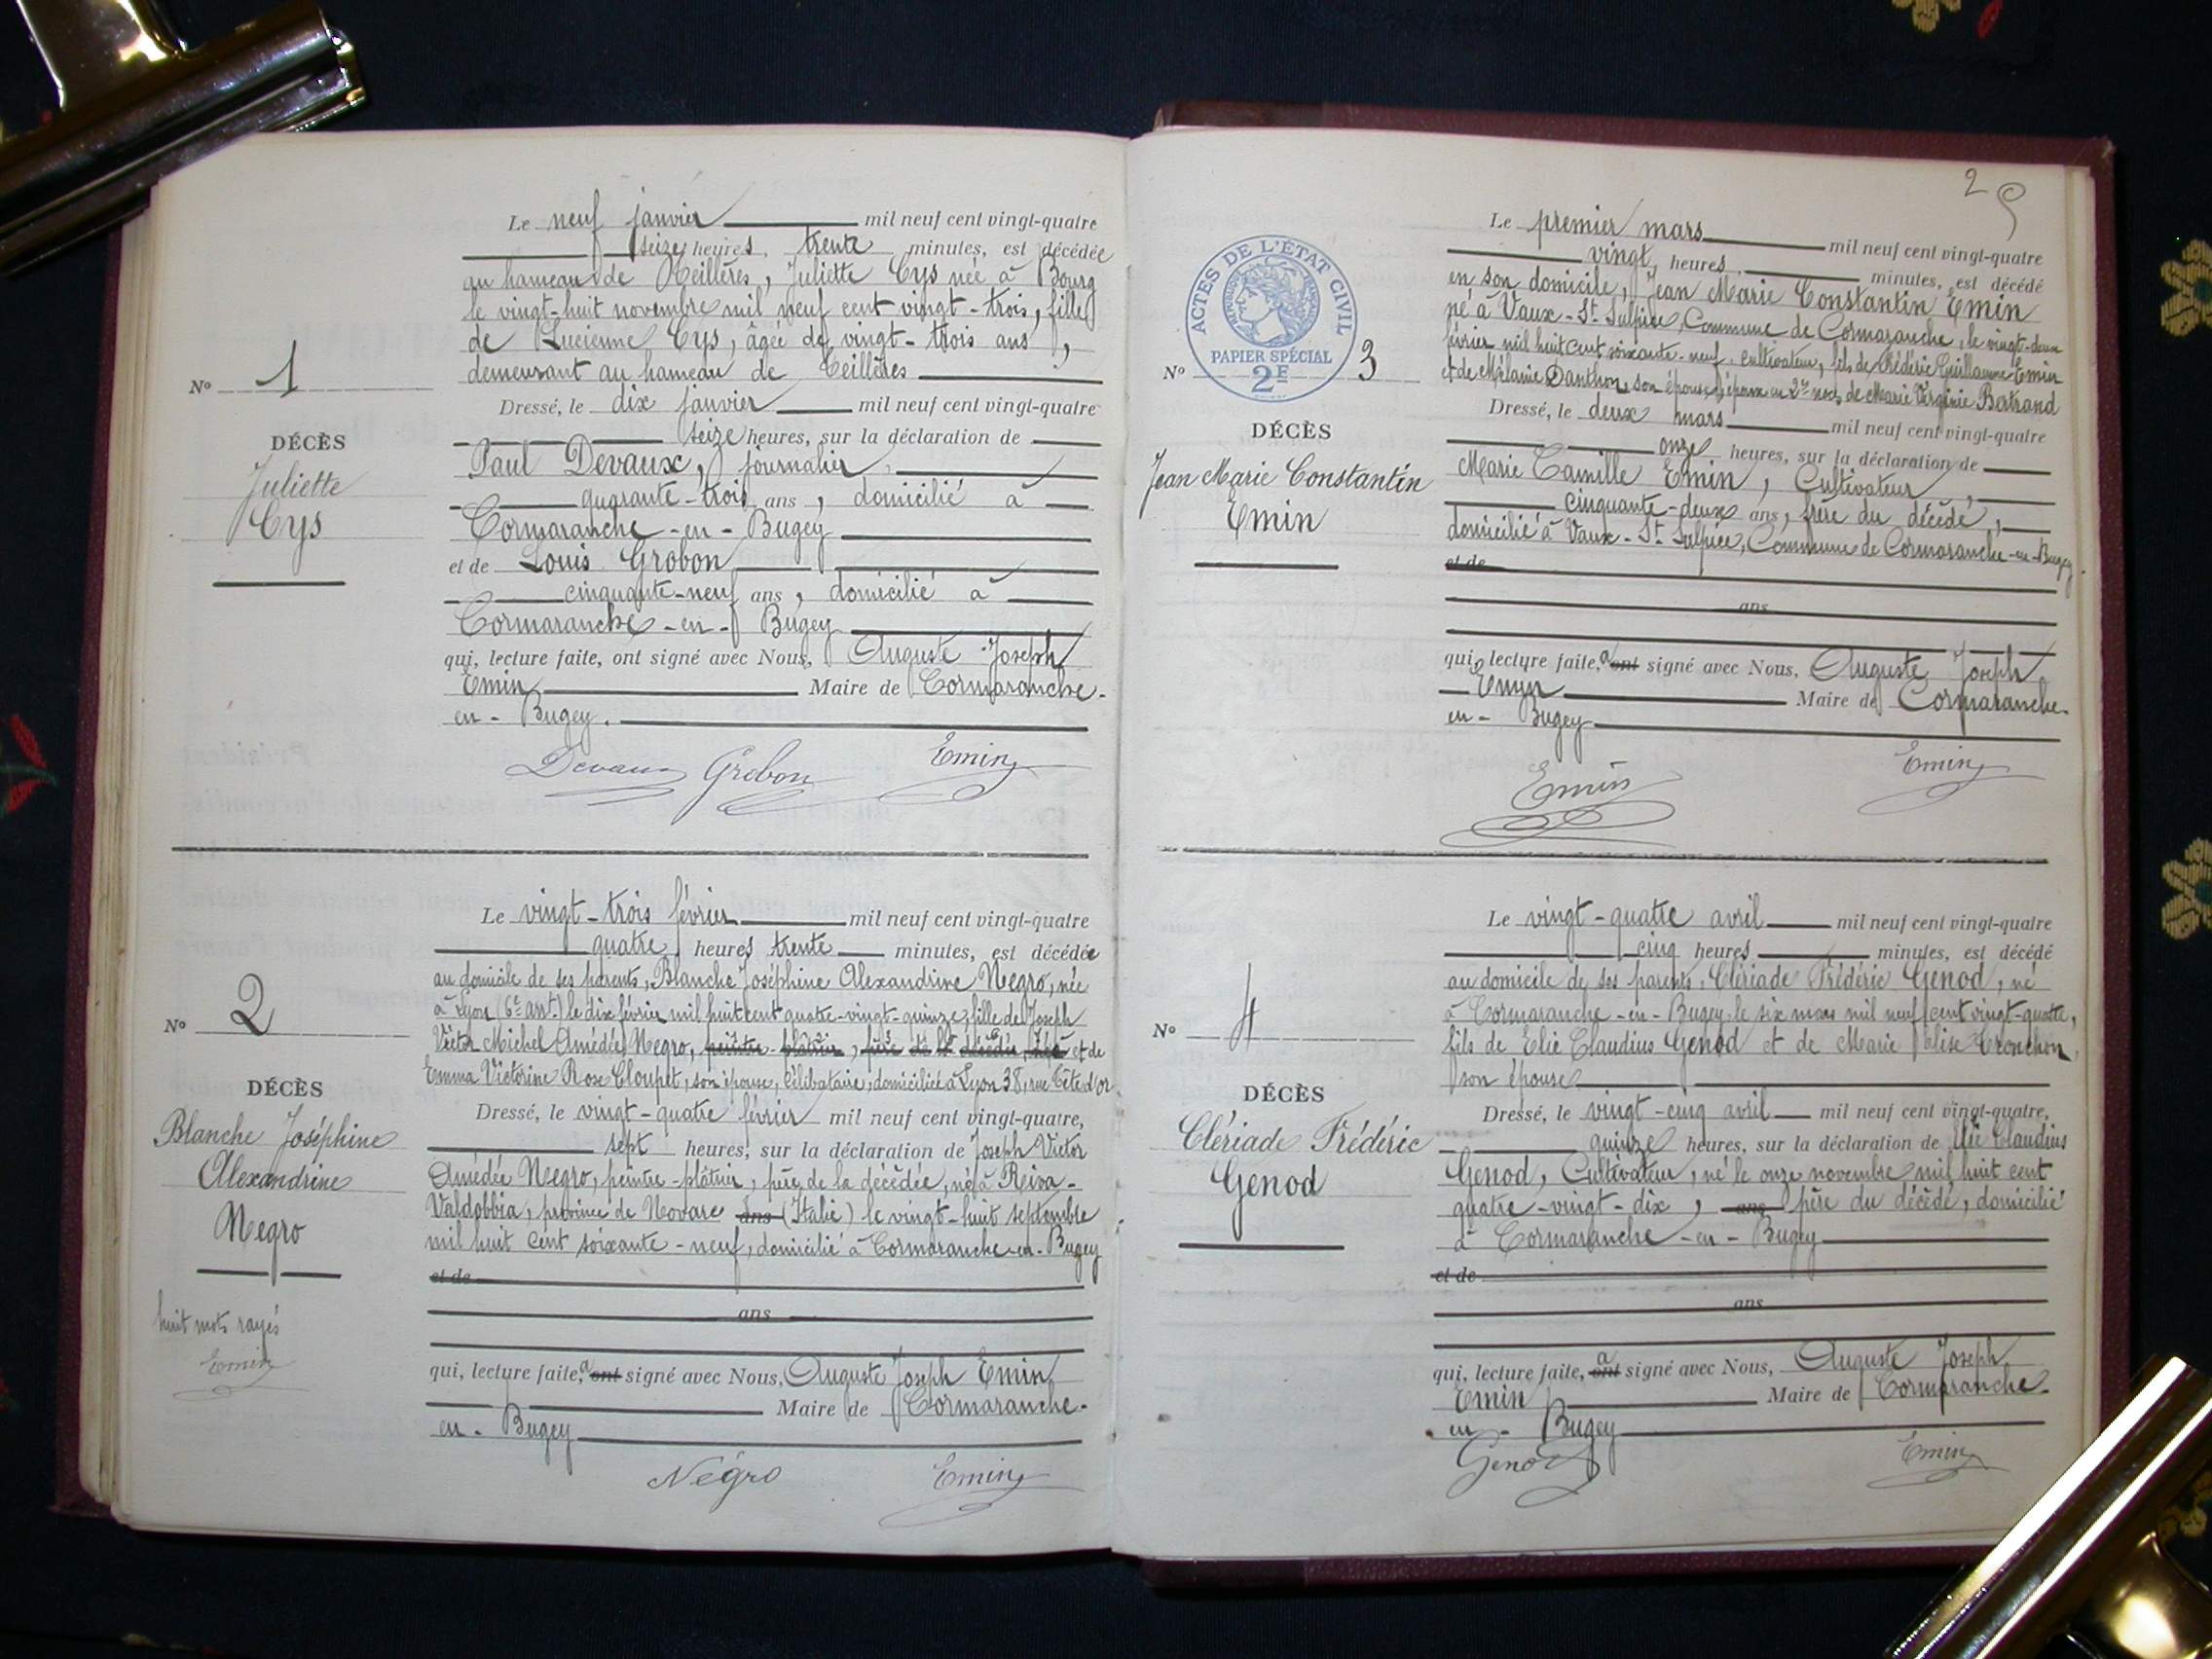 Le neuf janvier mil neuf cent vingt-quatre
seize heures, trente minutes, est décédée
au hameau de Teillères, Juliette Cys née à Bourg
le vingt-huit novembre mil neuf cent vingt-trois, fille
de Lucienne Cys, âgée de vingt-trois ans,
demeurant au hameau de Teillères
N° 1
Dressé, le dix janvier mil neuf cent vingt-quatre
seize heures, sur la déclaration de
DÉCÈS
Juliette
Cys
Paul Devaux, journalier,
quarante-trois ans, domicilié à
Cormaranche-en-Bugey
et de Louis Grobon
cinquante-neuf ans, domicilié à
Cormaranche-en-Bugey
qui, lecture faite, ont signé avec Nous, Auguste Joseph
Emin Maire de Cormaranche-
en-Bugey.
Devaux Grobon Emin
Le vingt-trois février mil neuf cent vingt-quatre
quatre heures trente minutes, est décédée
au domicile de ses parents, Blanche Joséphine Alexandrine Negro, née
à Lyon (6e arrt) le dix février mil huit cent quatre-vingt-quinze, fille de Joseph
Victor Michel Amédée Negro, peintre-plâtrier, père de la décédée, né à et de
Emma Victorine Rose Cloupet, son épouse, célibataire, domiciliée à Lyon 38, rue Tête d'or
N° 2
DÉCÈS
Blanche Joséphine
Alexandrine
Negro
huit mots rayés
Emin
Dressé, le vingt-quatre février mil neuf cent vingt-quatre,
sept heures, sur la déclaration de Joseph Victor
Amédée Negro, peintre-plâtrier, père de la décédée, né à Riva-
Valdobbia, province de Novare ans (Italie) le vingt-huit septembre
mil huit cent soixante-neuf, domicilié à Cormaranche-en-Bugey
et de
ans
qui, lecture faite, a ont signé avec Nous, Auguste Joseph Emin
Maire de Cormaranche-
en-Bugey
Négro Emin
2
Le premier mars mil neuf cent vingt-quatre
vingt heures, minutes, est décédé
en son domicile, Jean Marie Constantin Emin
né à Vaux-St-Sulpice, Commune de Cormaranche, le vingt-deux
février mil huit cent soixante-neuf, cultivateur, fils de Frédéric Guillaume Emin
et de Mélanie Danthon, son épouse, époux en 2es noces de Marie Virginie Bertrand
ACTES DE L'ÉTAT CIVIL
PAPIER SPÉCIAL
2E
N° 3
DÉCÈS
Jean Marie Constantin
Emin
Dressé, le deux mars mil neuf cent vingt-quatre
onze heures, sur la déclaration de
Marie Camille Emin, Cultivateur,
cinquante-deux ans, frère du décédé,
domicilié à Vaux-St-Sulpice, Commune de Cormaranche-en-Bugey.
et de
ans
qui, lecture faite, a ont signé avec Nous, Auguste Joseph
Emin Maire de Cormaranche-
en-Bugey
Emin Emin
Le vingt-quatre avril mil neuf cent vingt-quatre
cinq heures minutes, est décédé
au domicile de ses parents, Clériade Frédéric Genod, né
à Cormaranche-en-Bugey, le six mars mil neuf cent vingt-quatre,
fils de Elie Claudius Genod et de Marie Elise Tronchon,
son épouse
N° 4
DÉCÈS
Clériade Frédéric
Genod
Dressé, le vingt-cinq avril mil neuf cent vingt-quatre,
quinze heures, sur la déclaration de Elie Claudius
Genod, Cultivateur, né le onze novembre mil huit cent
quatre-vingt-dix, ans père du décédé, domicilié
à Cormaranche-en-Bugey
et de
ans
qui, lecture faite, a ont signé avec Nous, Auguste Joseph
Emin Maire de Cormaranche-
en-Bugey
Genod Emin